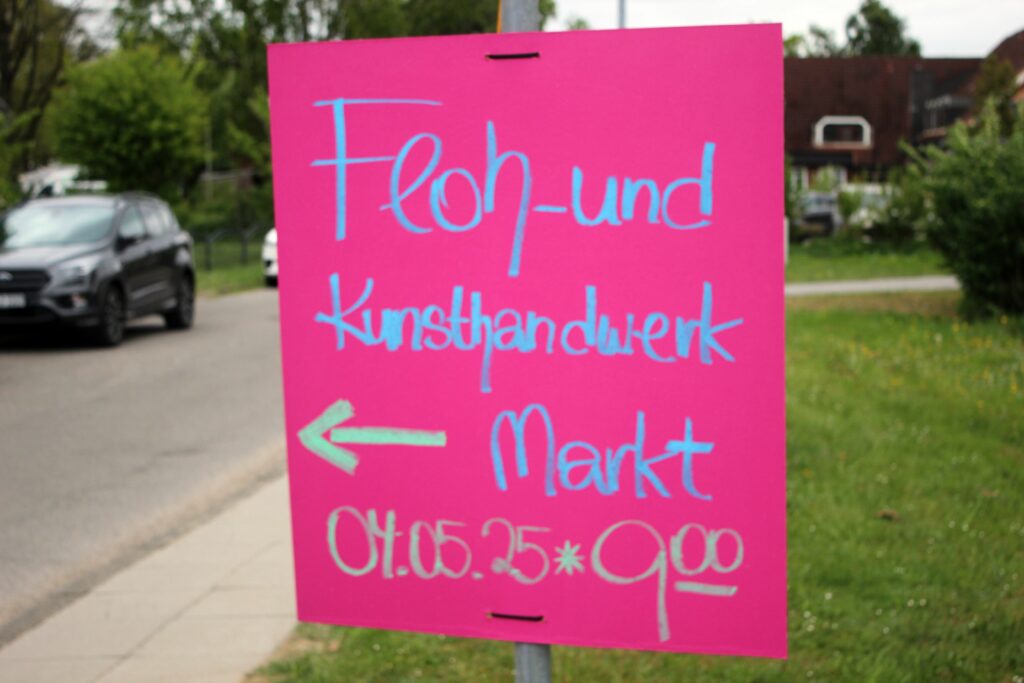 Floh-und
Kunsthandwerk
Markt
04.05.25*9 00